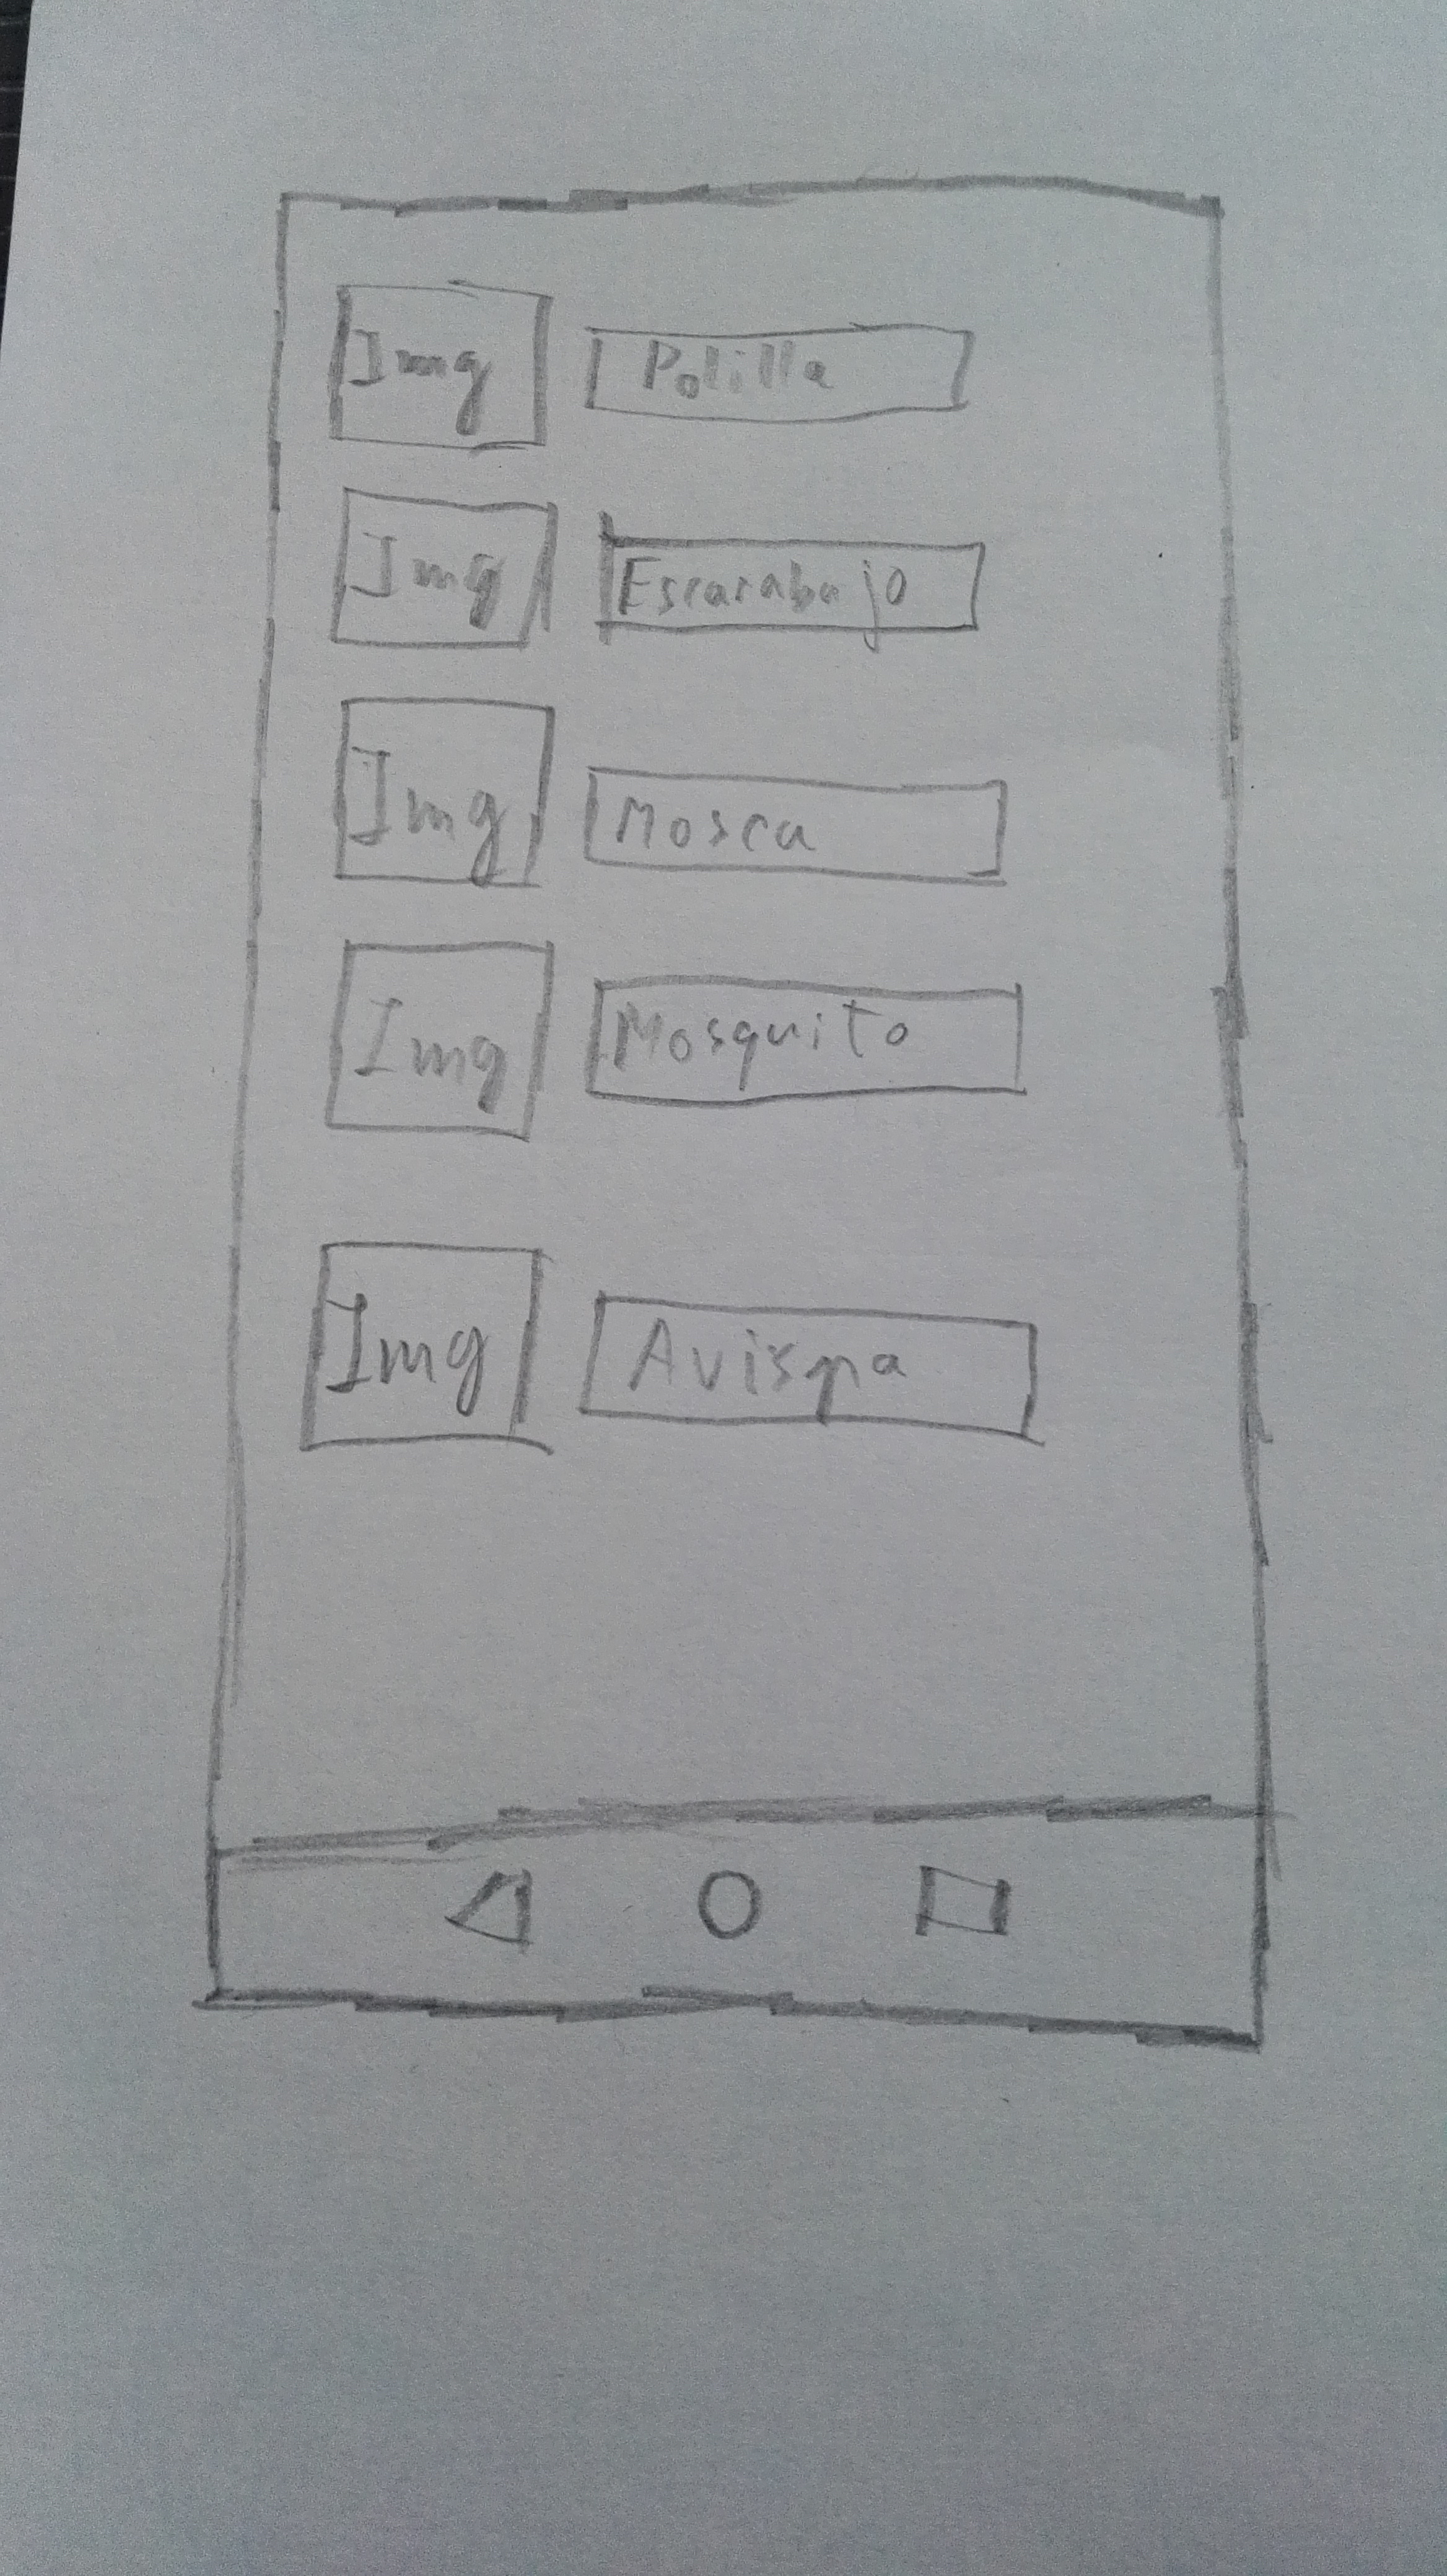 Img Polilla
Img Escarabajo
Img Mosca
Img Mosquito
Img Avispa